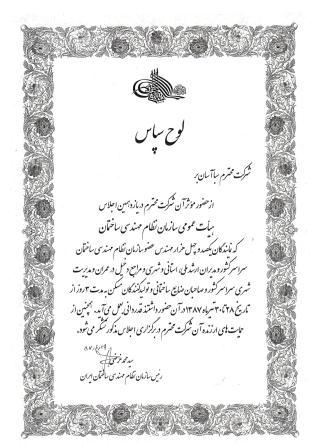 لوح سپاس
شرکت محترم سبا آسان بر
از حضور مؤثر آن شرکت محترم در یازدهمین اجلاس
هیأت عمومی سازمان نظام مهندسی ساختمان
که نمایندگان یکصد و چهل هزار مهندس عضو سازمان نظام مهندسی ساختمان
سراسر کشور و مدیران ارشد ملی، استانی و شهری و مراجع ذیل در عمران و مدیریت
شهری سراسر کشور و صاحبان صنایع ساختمانی و تولیدکنندگان مسکن به مدت ۳ روز از
تاریخ ۲۸ تا ۳۰ تیرماه ۱۳۸۷ در آن حضور داشتند قدردانی بعمل می‌آید. همچنین از
حمایت‌های ارزنده آن شرکت محترم در برگزاری اجلاس مذکور تشکر می‌شود.
سید محمد غرضی
رئیس سازمان نظام مهندسی ساختمان ایران